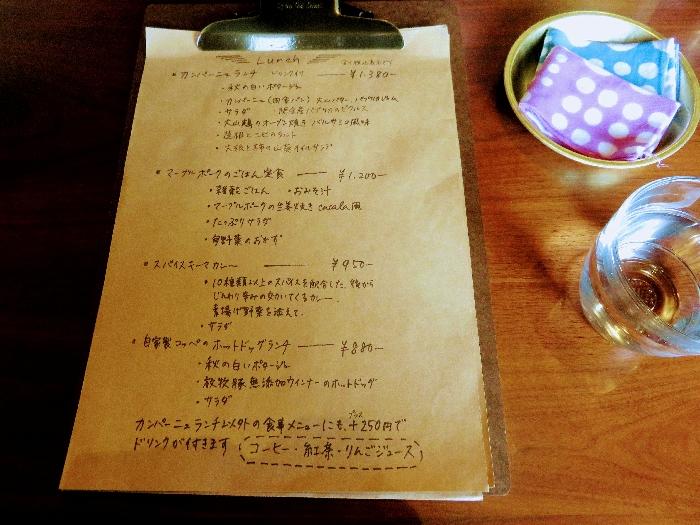 Lunch
・カンパーニュランチ ドリンク付 ¥1,380-
・秋の白いポタージュ
・カンパーニュ(田舎パン) 大山バター
・サラダ
・大山鶏のオーブン焼き バルサミコ風味
・大根と柿の
・マーブルポークのごはん定食 ¥1,200-
・雑穀ごはん ・おみそ汁
・マーブルポークの生姜焼き cacala風
・たっぷりサラダ
・旬野菜のおかず
・スパイスキーマカレー ¥950-
・10種類以上のスパイスを配合した、後から
じんわり辛みの効いてくるカレー。
素揚げ野菜を添えて。
・サラダ
・自家製コッペのホットドッグランチ ¥880-
・秋の白いポタージュ
・放牧豚無添加ウインナーのホットドッグ
・サラダ
カンパーニュランチ以外の食事メニューにも、+250円で
プラス
ドリンクが付きます コーヒー・紅茶・りんごジュース